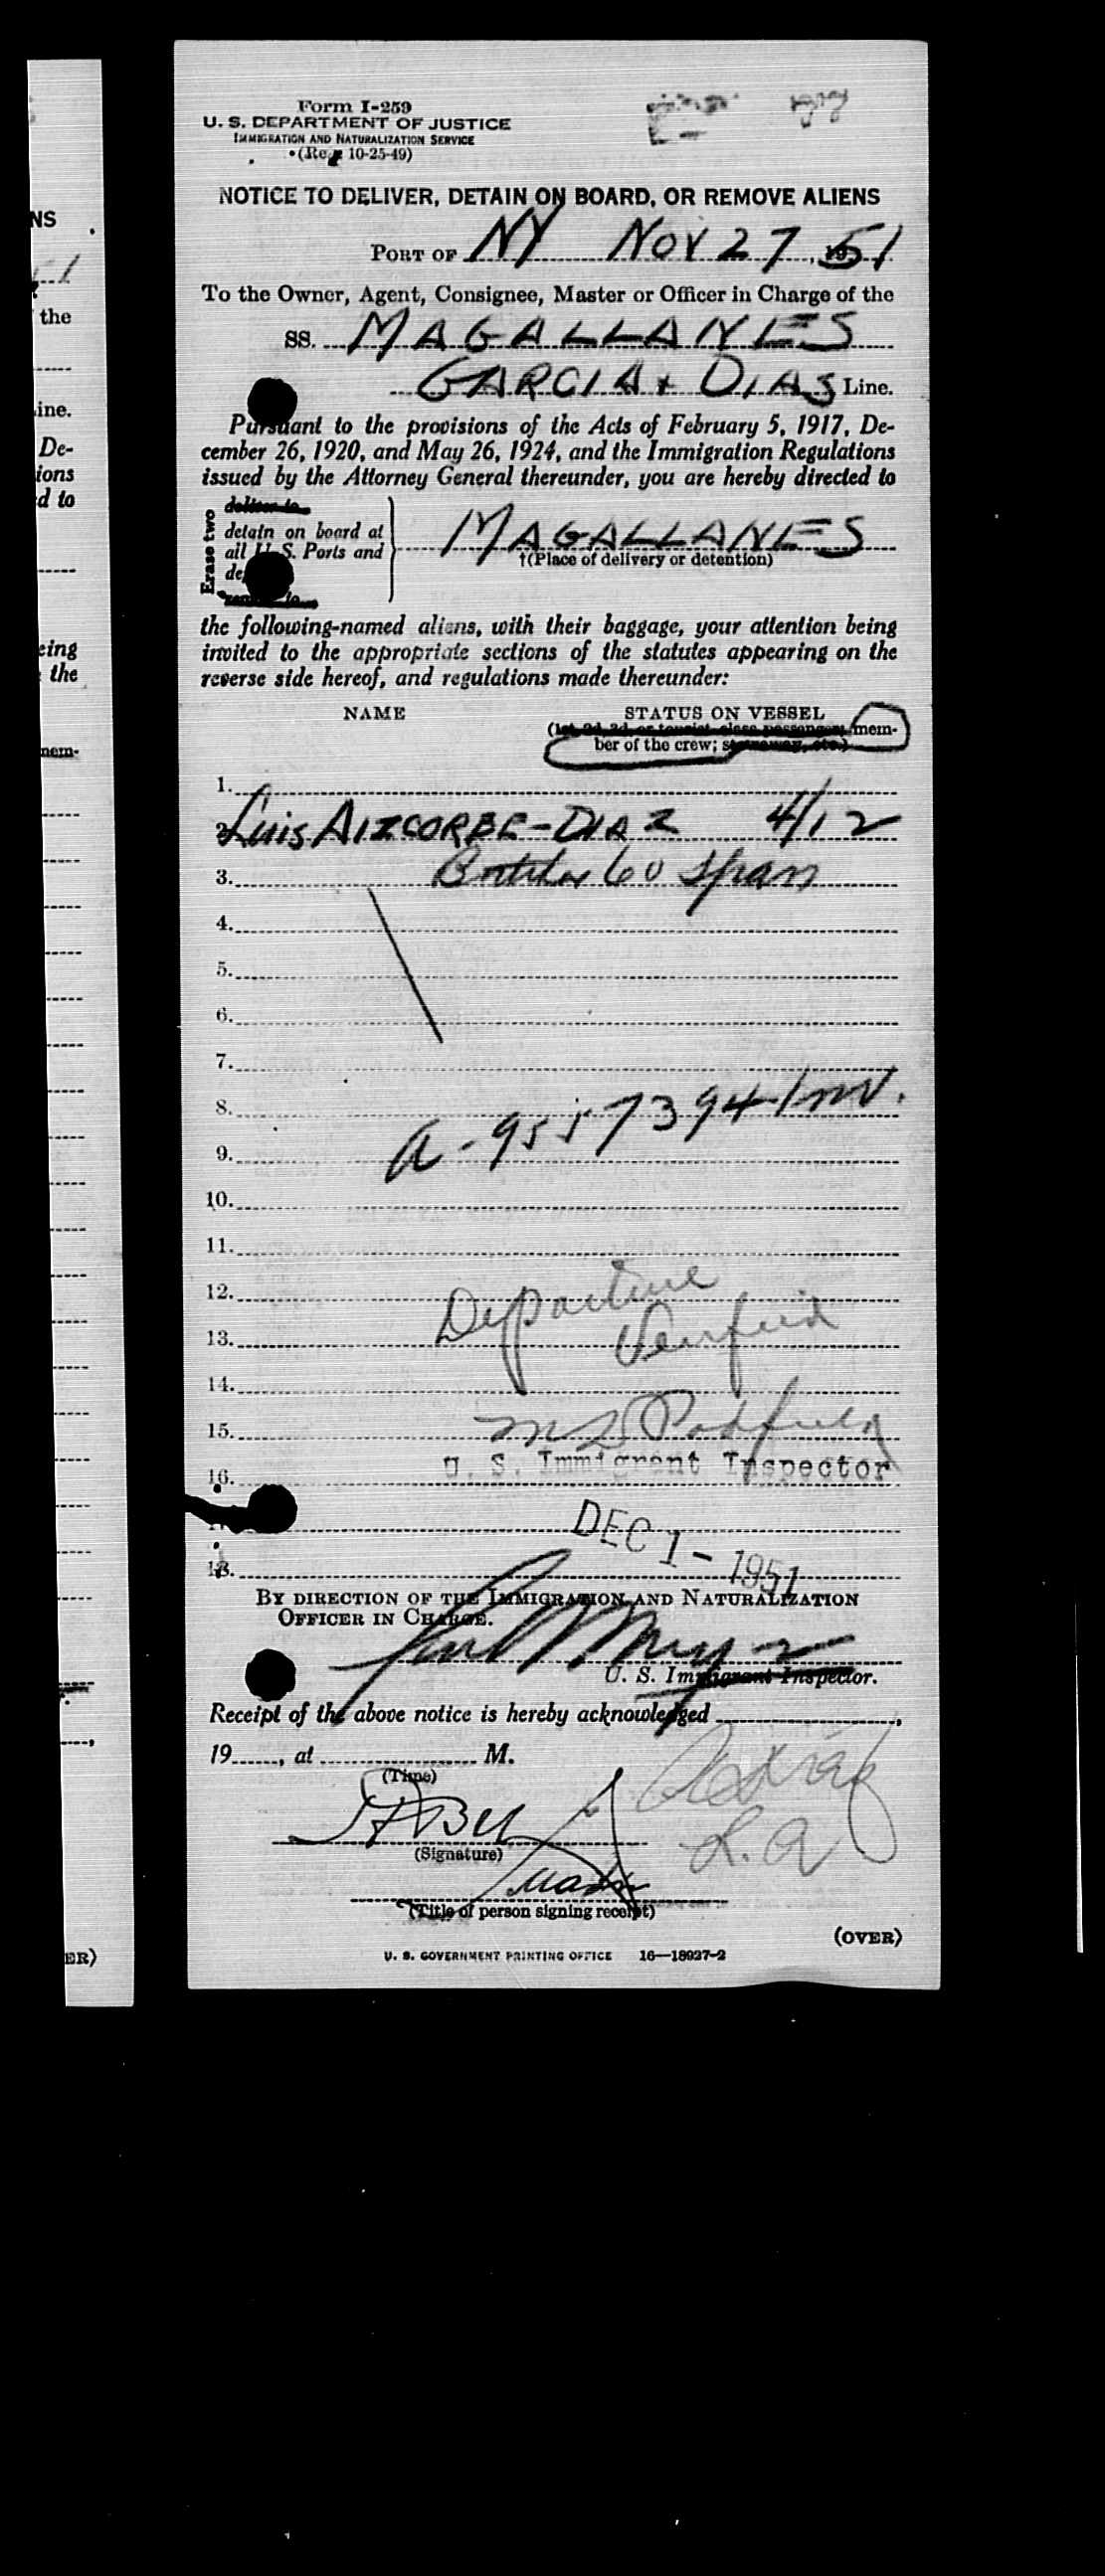 Form I-259
U. S. DEPARTMENT OF JUSTICE
IMMIGRATION AND NATURALIZATION SERVICE
(Rev. 10-25-49)
NOTICE TO DELIVER, DETAIN ON BOARD, OR REMOVE ALIENS
PORT OF NY NOV 27, 1951
To the Owner, Agent, Consignee, Master or Officer in Charge of the
SS. MAGALLANES
GARCIA + DIAS Line.
Pursuant to the provisions of the Acts of February 5, 1917, De-
cember 26, 1920, and May 26, 1924, and the Immigration Regulations
issued by the Attorney General thereunder, you are hereby directed to
Erase two
deliver to
detain on board at
all U. S. Ports and
MAGALLANES
†(Place of delivery or detention)
the following-named aliens, with their baggage, your attention being
invited to the appropriate sections of the statutes appearing on the
reverse side hereof, and regulations made thereunder:
NAME STATUS ON VESSEL
(1st, 2d, 3d, or tourist class passenger, mem-
ber of the crew; stowaway, etc.)
1.
2. Luis AIZCORBE-DIAZ 4/12
3. 60 Span
4.
5.
6.
7.
8.
9. A-9557394
10.
11.
12. Departure
13. Verified
14.
15.
U. S. Immigrant Inspector
16.
DEC 1 - 1951
18.
BY DIRECTION OF THE IMMIGRATION AND NATURALIZATION
OFFICER IN CHARGE.
U. S. Immigrant Inspector.
Receipt of the above notice is hereby acknowledged ,
19 , at M.
(Time)
(Signature)
(Title of person signing receipt)
(OVER)
U. S. GOVERNMENT PRINTING OFFICE 16—18927-2